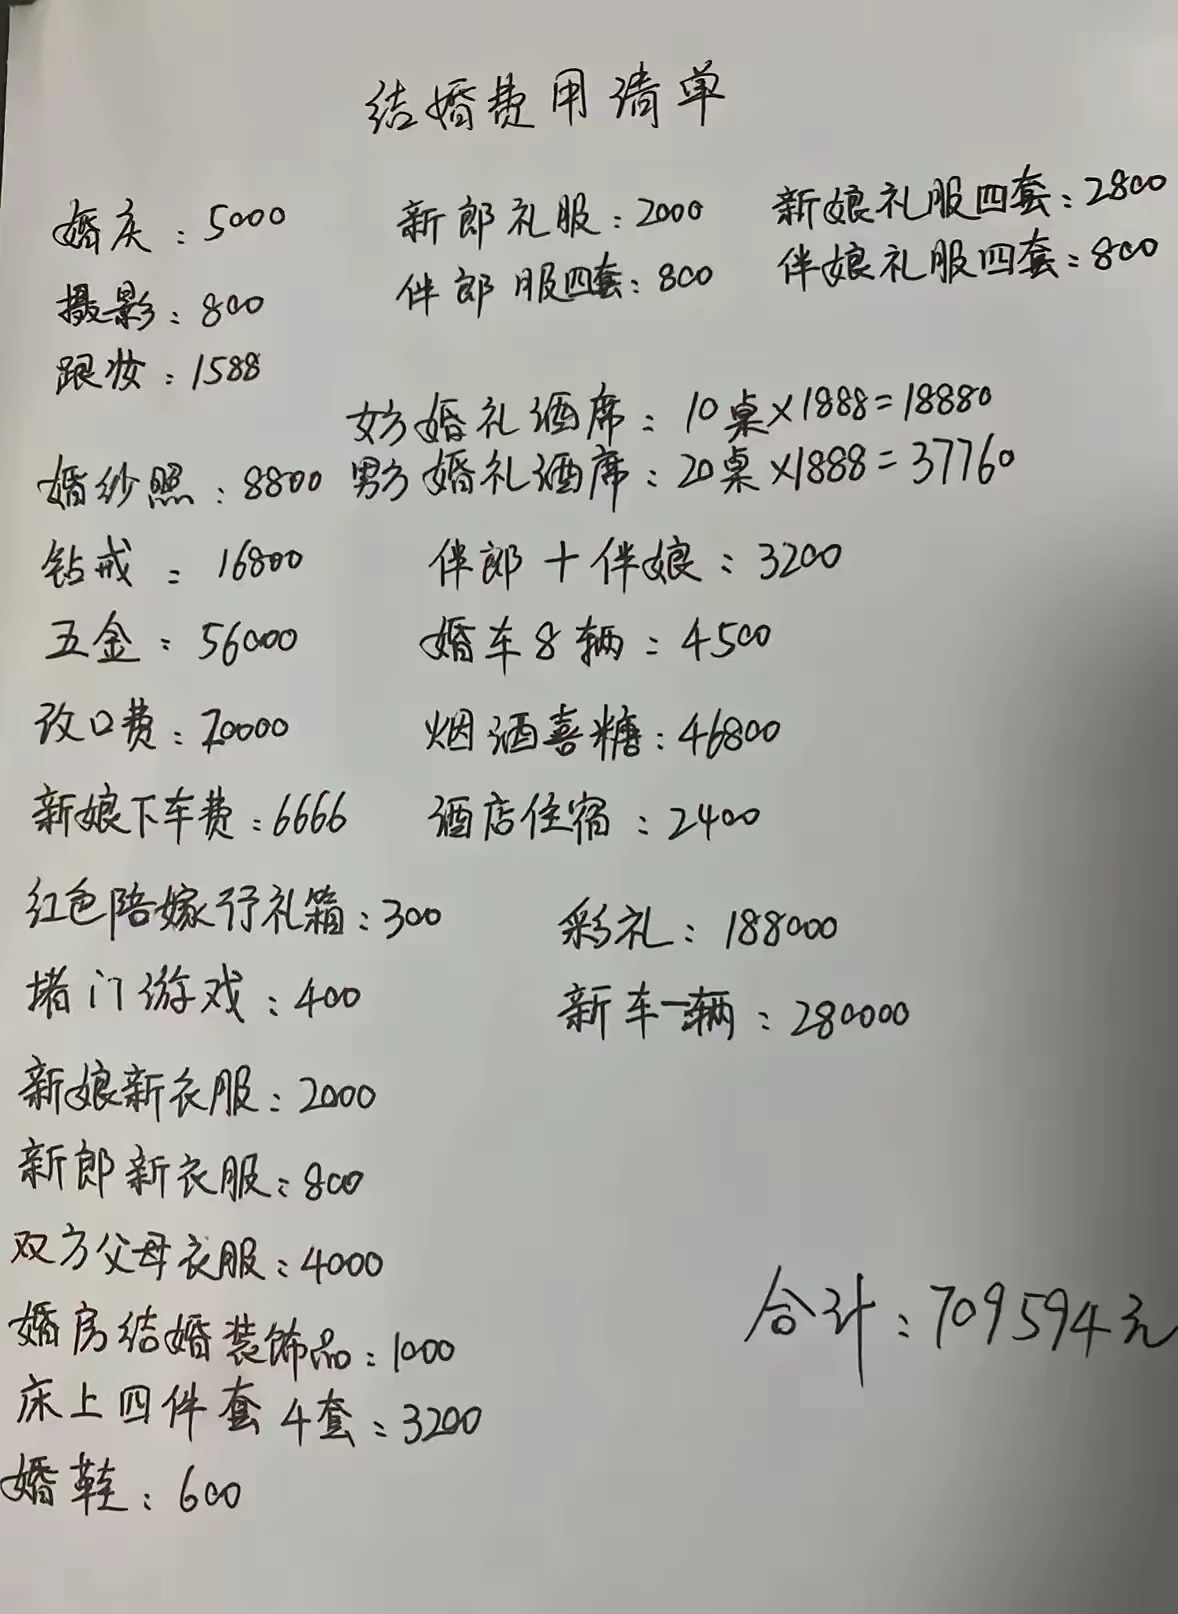 结婚费用清单
婚庆：5000 新郎礼服：2000 新娘礼服四套：2800
摄影：800 伴郎服四套：800 伴娘礼服四套：800
跟妆：1588
女方婚礼酒席：10桌×1888=18880
婚纱照：8800 男方婚礼酒席：20桌×1888=37760
钻戒：16800 伴郎+伴娘：3200
五金：56000 婚车8辆：4500
改口费：20000 烟酒喜糖：46800
新娘下车费：6666 酒店住宿：2400
红色陪嫁行礼箱：300 彩礼：188000
堵门游戏：400 新车一辆：280000
新娘新衣服：2000
新郎新衣服：800
双方父母衣服：4000
婚房结婚装饰品：1000
床上四件套4套：3200
婚鞋：600
合计：709594元